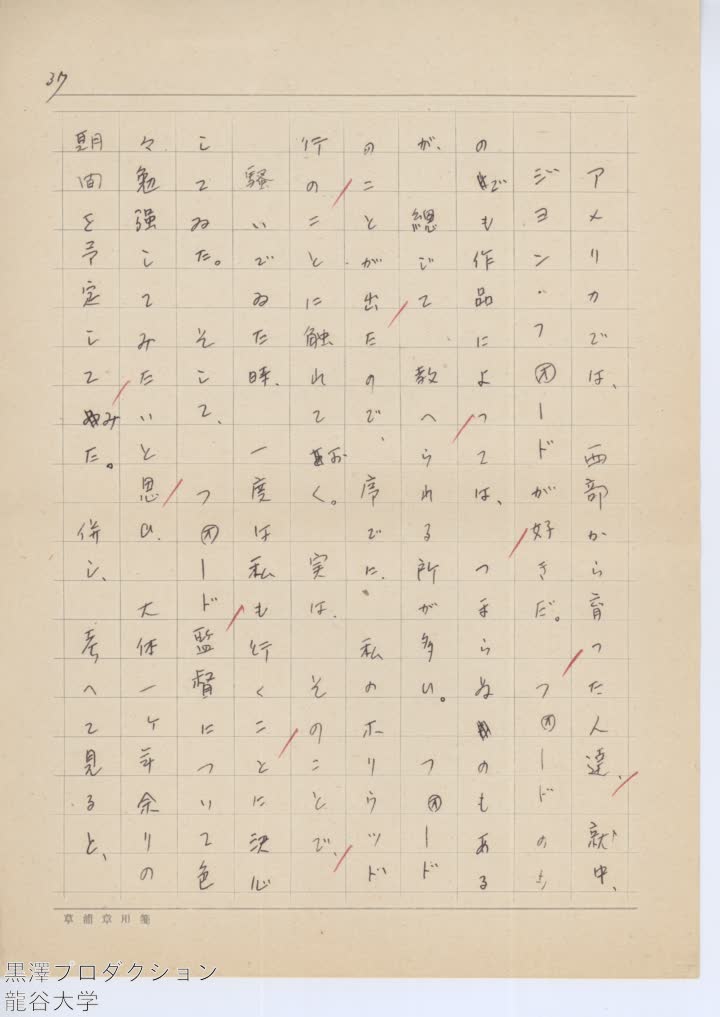 37
アメリカでは、西部から育つた人達、就中、
ジヨン・フオードが好きだ。フオードのも
のでも作品によつては、つまらぬのもある
が、總じて教へられる所が多い。フオード
のことが出たので、序でに、私のホリウツド
行のことに触れておく。実は、そのことで、
騒いでゐた時、一度は私も行くことに決心
してゐた。そして、フオード監督について色
々勉強してみたいと思ひ、大体一ヶ年余りの
期間を予定してみた。併し、考へて見ると、
黒澤プロダクション
龍谷大学